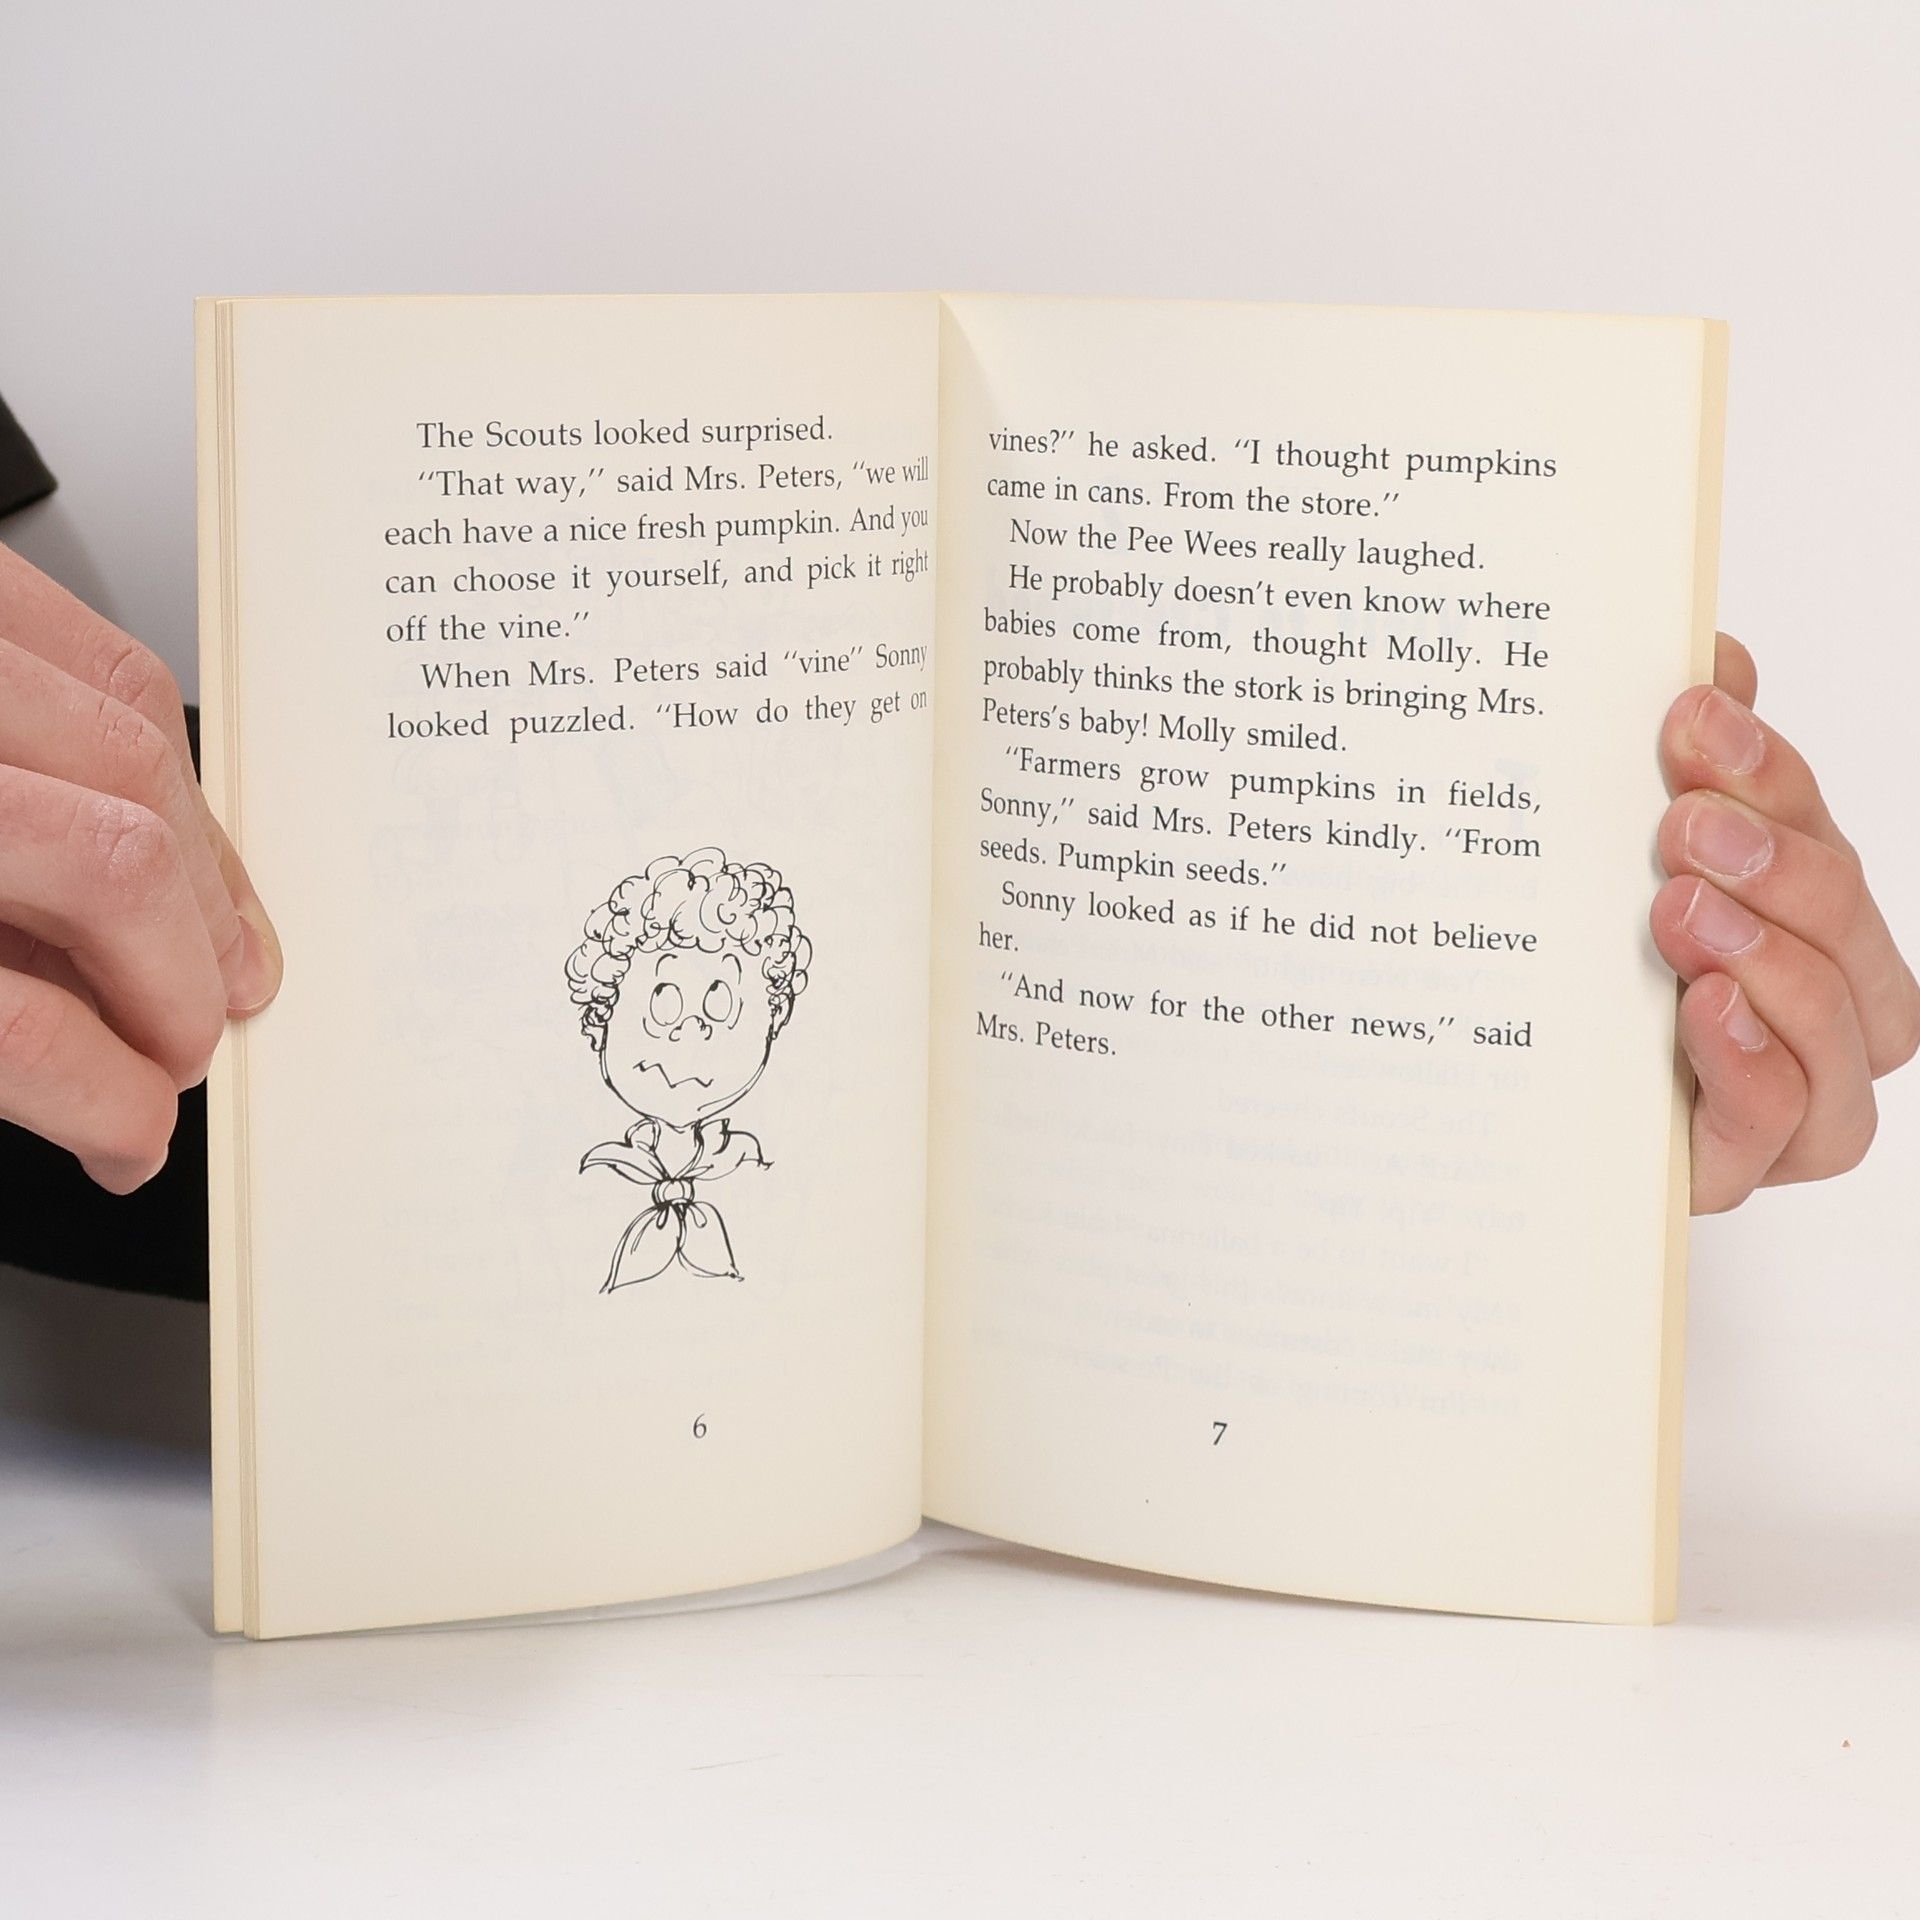 The Scouts looked surprised.
“That way,” said Mrs. Peters, “we will
each have a nice fresh pumpkin. And you
can choose it yourself, and pick it right
off the vine.”
When Mrs. Peters said “vine” Sonny
looked puzzled. “How do they get on
6
vines?” he asked. “I thought pumpkins
came in cans. From the store.”
Now the Pee Wees really laughed.
He probably doesn’t even know where
babies come from, thought Molly. He
probably thinks the stork is bringing Mrs.
Peters’s baby! Molly smiled.
“Farmers grow pumpkins in fields,
Sonny,” said Mrs. Peters kindly. “From
seeds. Pumpkin seeds.”
Sonny looked as if he did not believe
her.
“And now for the other news,” said
Mrs. Peters.
7